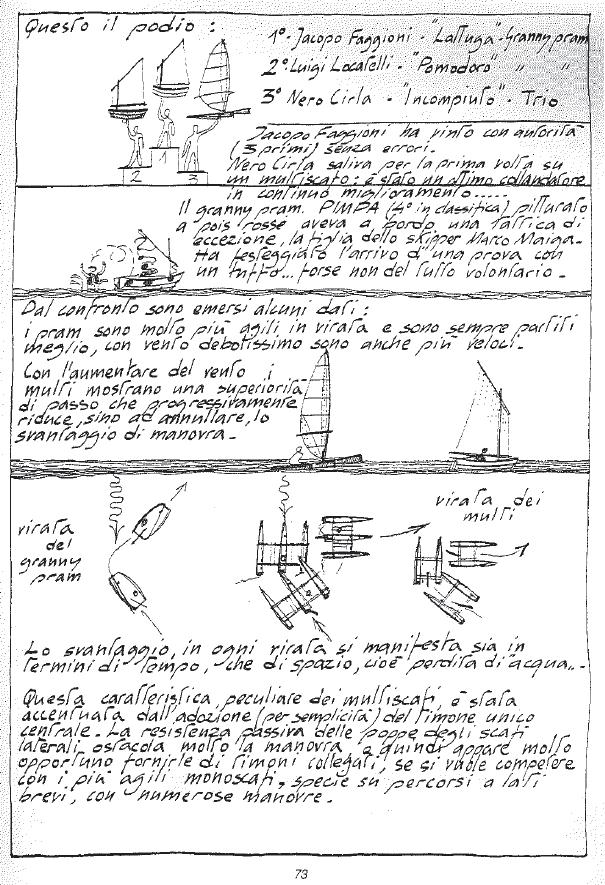 Questo il podio :
1°- Jacopo Faggioni - "Lattuga" - Granny pram
2° Luigi Locatelli - "Pomodoro" " "
3° Nero Cirla - "Incompiuto" - Trio
2 1 3
Jacopo Faggioni ha vinto con autorità
(3 primi) senza errori.
Nero Cirla saliva per la prima volta su
un multiscafo: è stato un ottimo collandatore
in continuo miglioramento.....
Il granny pram. PIMPA (4° in classifica) pitturato
a pois rosse aveva a bordo una tattica di
eccezione, la figlia dello skipper Marco Maiga.
Ha festeggiato l'arrivo di una prova con
un tuffo... forse non del tutto volontario.
Dal confronto sono emersi alcuni dati:
i pram sono molto più agili in virata e sono sempre partiti
meglio, con vento debolissimo sono anche più veloci.
Con l'aumentare del vento i
multi mostrano una superiorità
di passo che progressivamente
riduce, sino ad annullare, lo
svantaggio di manovra.
virata
del
granny
pram
virata dei
multi
Lo svantaggio, in ogni virata si manifesta sia in
termini di tempo, che di spazio, cioè perdita di "acqua"..
Questa caratteristica, peculiare dei multiscafi, è stata
accentuata dall'adozione (per semplicità) del timone unico
centrale. La resistenza passiva delle poppe degli scafi
laterali ostacola molto la manovra e quindi appare molto
opportuno fornirle di timoni collegati, se si vuole competere
con i più agili monoscafi, specie su percorsi a lati
brevi, con numerose manovre.
73